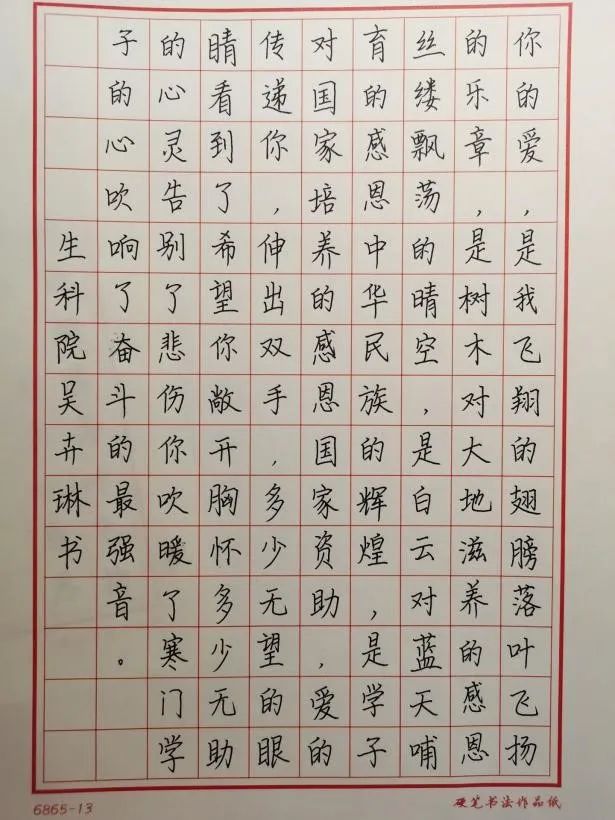 你的爱，是我飞翔的翅膀落叶飞扬
的乐章，是树木对大地滋养的感恩
丝缕飘荡的晴空，是白云对蓝天哺
育的感恩中华民族的辉煌，是学子
对国家培养的感恩国家资助，爱的
传递你，伸出双手，多少无望的眼
睛看到了希望你敞开胸怀多少无助
的心灵告别了悲伤你吹暖了寒门学
子的心吹响了奋斗的最强音。
生科院吴卉琳书
6865-13
硬笔书法作品纸